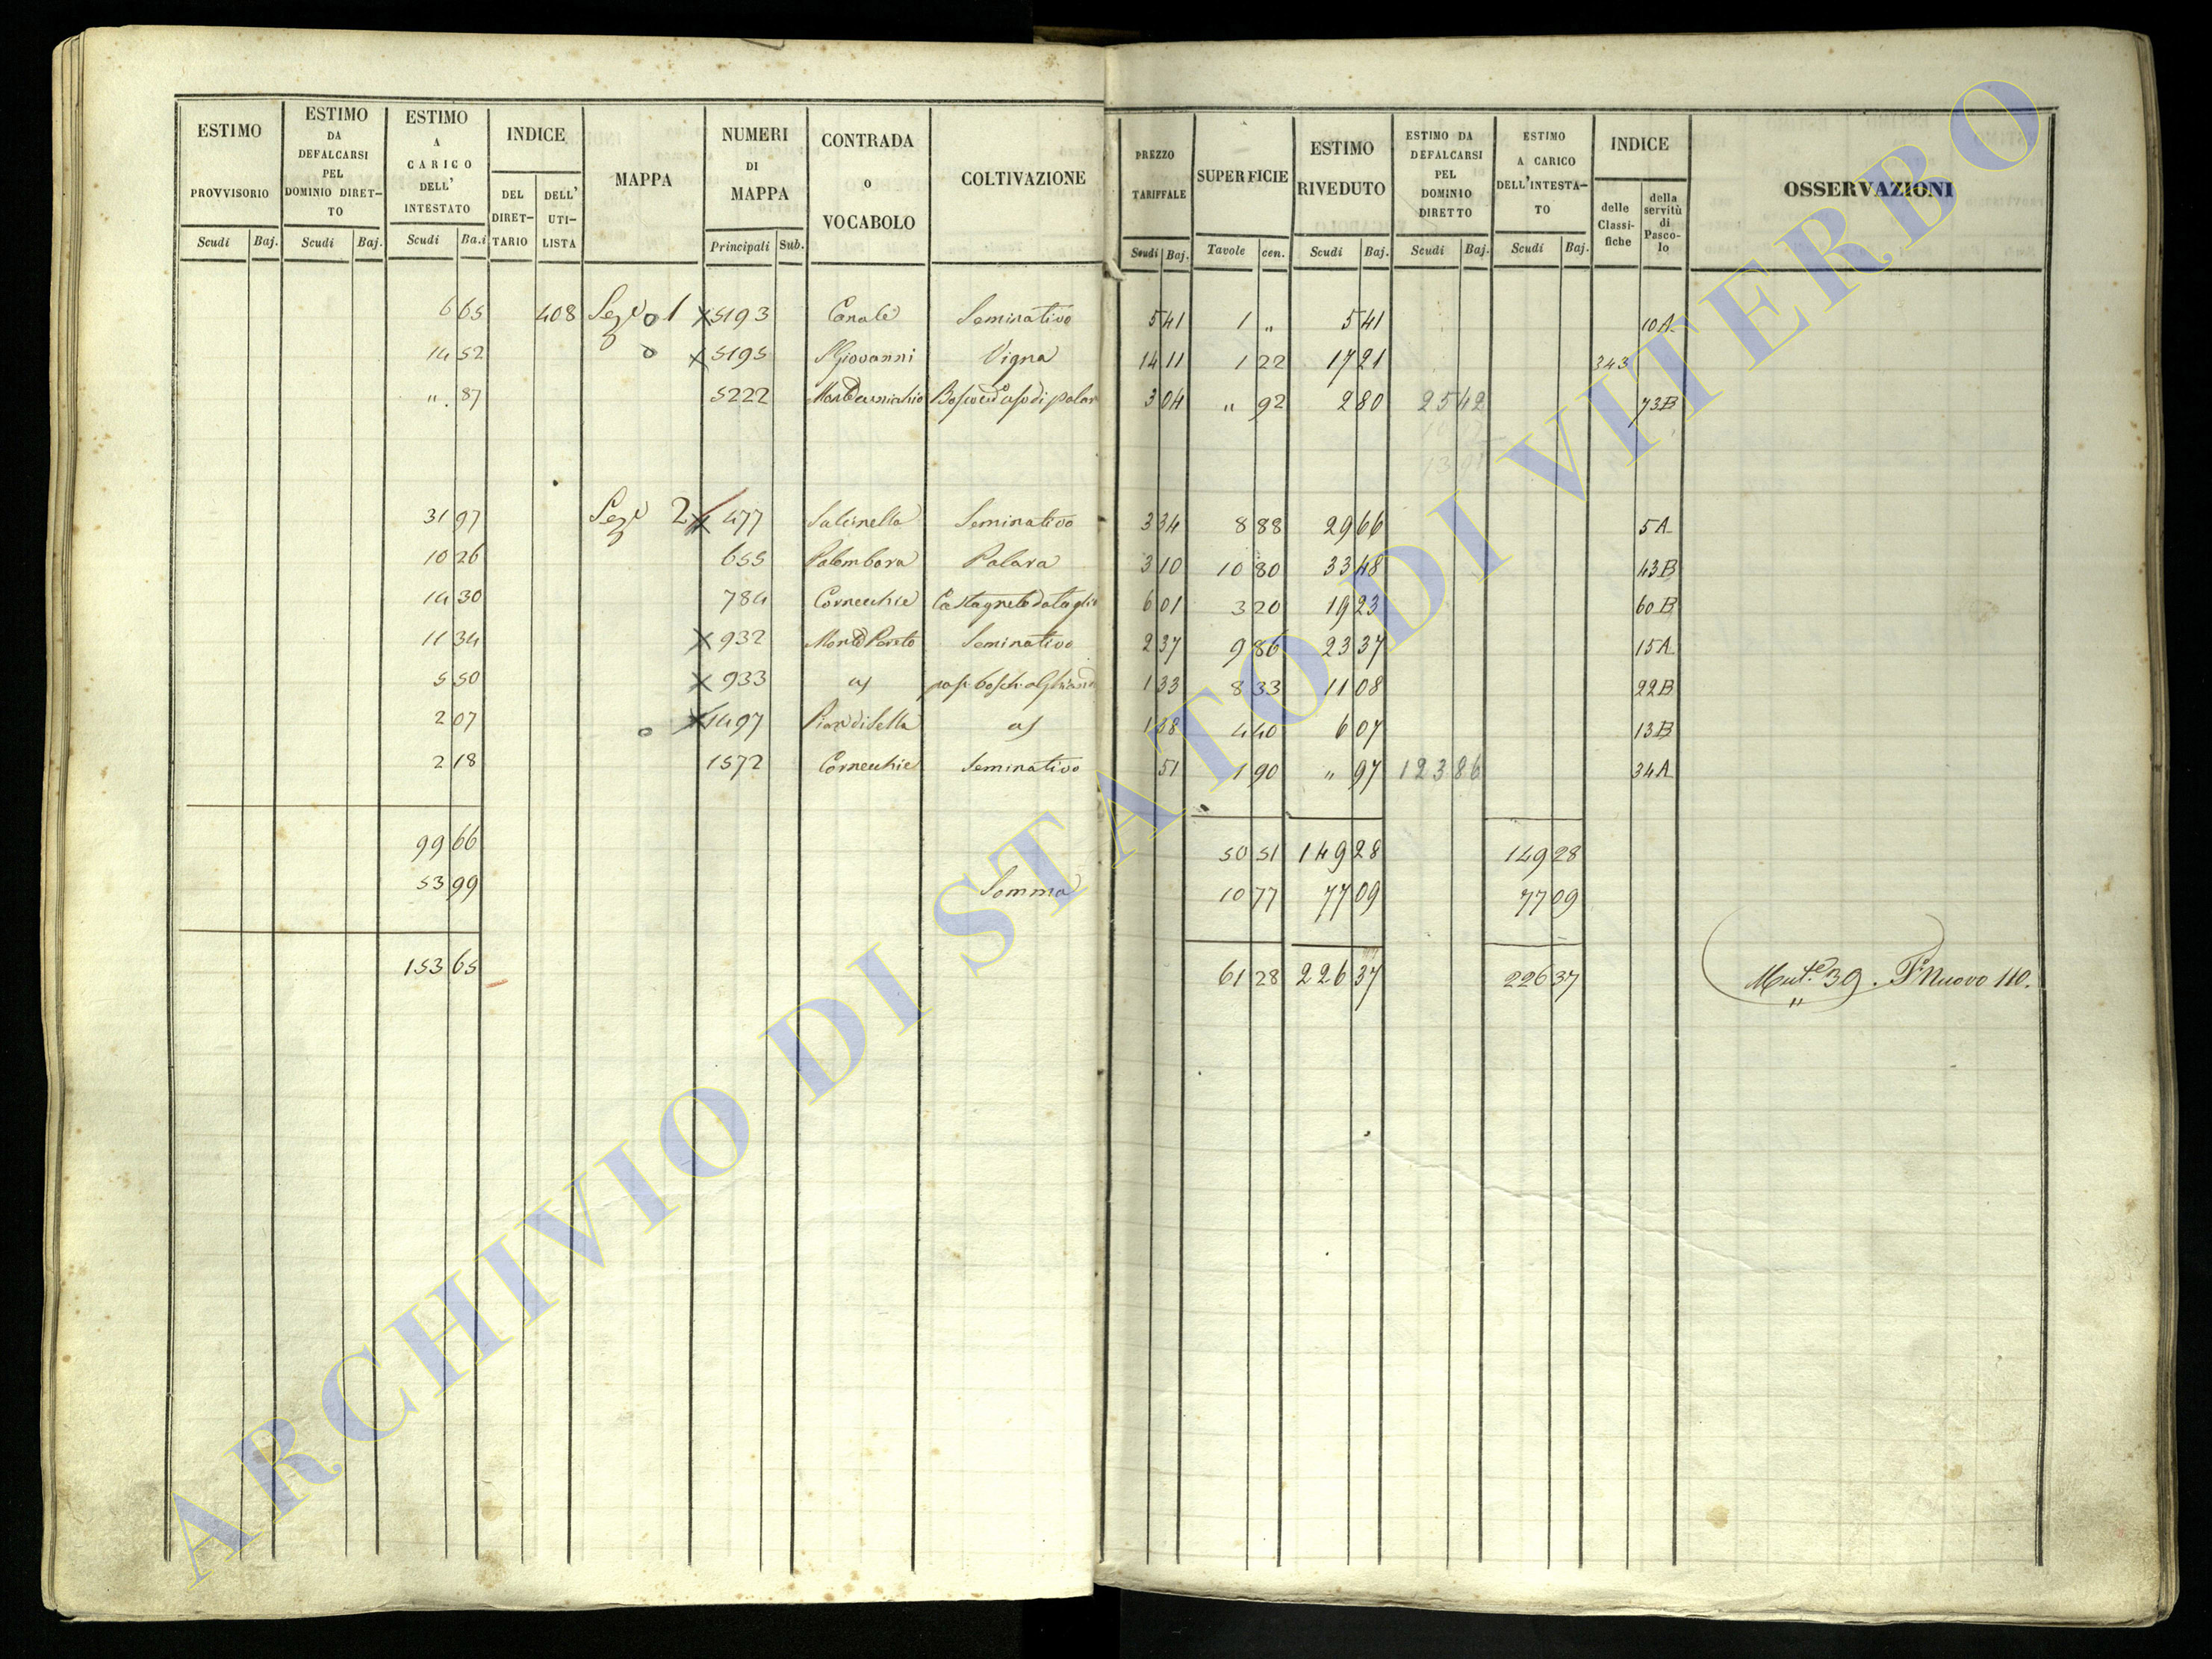 ESTIMO PROVVISORIO Scudi Baj.
ESTIMO DA DEFALCARSI PEL DOMINIO DIRET-TO Scudi Baj.
ESTIMO A CARICO DELL' INTESTATO Scudi Ba.i
INDICE DEL DIRET-TARIO DELL' UTI-LISTA
MAPPA
NUMERI DI MAPPA Principali Sub.
CONTRADA O VOCABOLO
COLTIVAZIONE
PREZZO TARIFFALE Scudi Baj.
SUPERFICIE Tavole cen.
ESTIMO RIVEDUTO Scudi Baj.
ESTIMO DA DEFALCARSI PEL DOMINIO DIRETTO Scudi Baj.
ESTIMO A CARICO DELL'INTESTA-TO Scudi Baj.
INDICE delle Classi-fiche della servitù di Pasco-lo
OSSERVAZIONI
6 65 408 Sez.e 1 x 5193 Canale Seminativo 5 41 1 „ 5 41 10A
14 52 x 5195 S Giovanni Vigna 14 11 1 22 17 21 343
„ 87 5222 3 04 „ 92 2 80 25 42 73B
31 97 Sez.e 2 x 477 Salcinella Seminativo 3 34 8 88 29 66 5A
10 26 655 Palombara Palara 3 10 10 80 33 48 43B
14 30 784 Cornecchie Castagneto da taglio 6 01 3 20 19 23 60B
11 34 x 932 Monte Poreto Seminativo 2 37 9 86 23 37 15A
5 50 x 933 1 33 8 33 11 08 22B
2 07 x 1497 1 38 4 40 6 07 13B
2 18 1572 Cornecchie Seminativo 51 1 90 „ 97 123 86 34A
99 66 50 51 149 28 149 28
53 99 Somma 10 77 77 09 77 09
153 65 61 28 226 37 226 37 Mut.e 39. P.a Nuovo 110.
ARCHIVIO DI STATO DI VITERBO